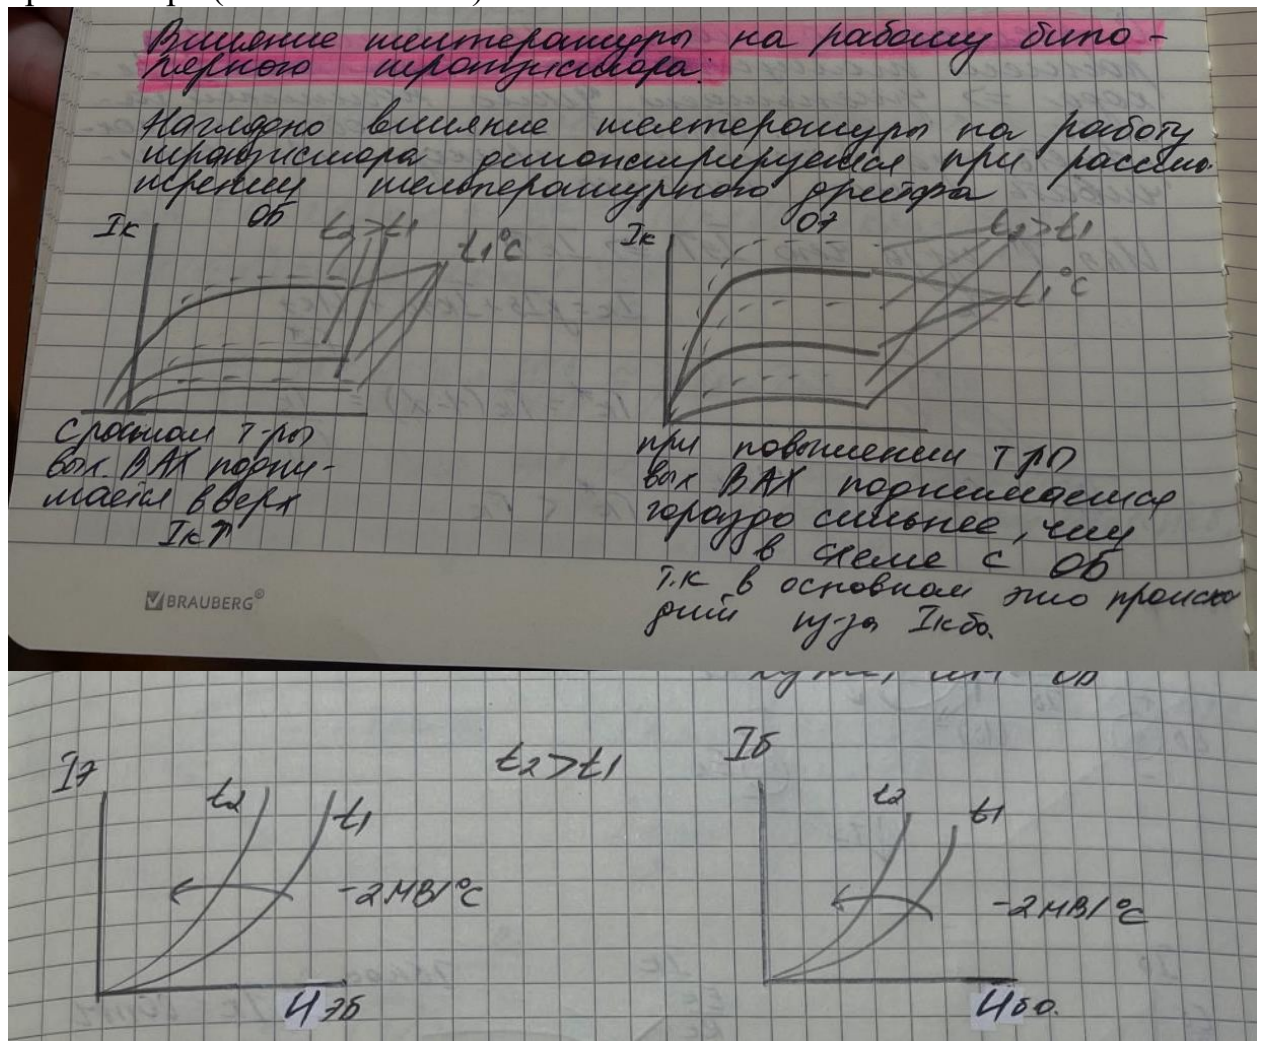 Влияние температуры на работу бипо-
лярного транзистора:
Наглядно влияние температуры на работу
транзистора демонстрируется при рассмо-
трении температурного дрейфа
ОБ
ОЭ
Iк
t2>t1
t1°C
Iк
t2>t1
t1°C
С ростом т-ры
вых. ВАХ подни-
мается вверх
Iк↑
при повышении т-ры
вых ВАХ поднимается
гораздо сильнее, чем
в схеме с ОБ
т.к в основном это происхо
дит из-за Iкбо.
BRAUBERG®
чем ОБ
Iэ
t2
t1
-2мВ/°C
Uэб
t2>t1
Iб
t2
t1
-2мВ/°C
Uбэ.